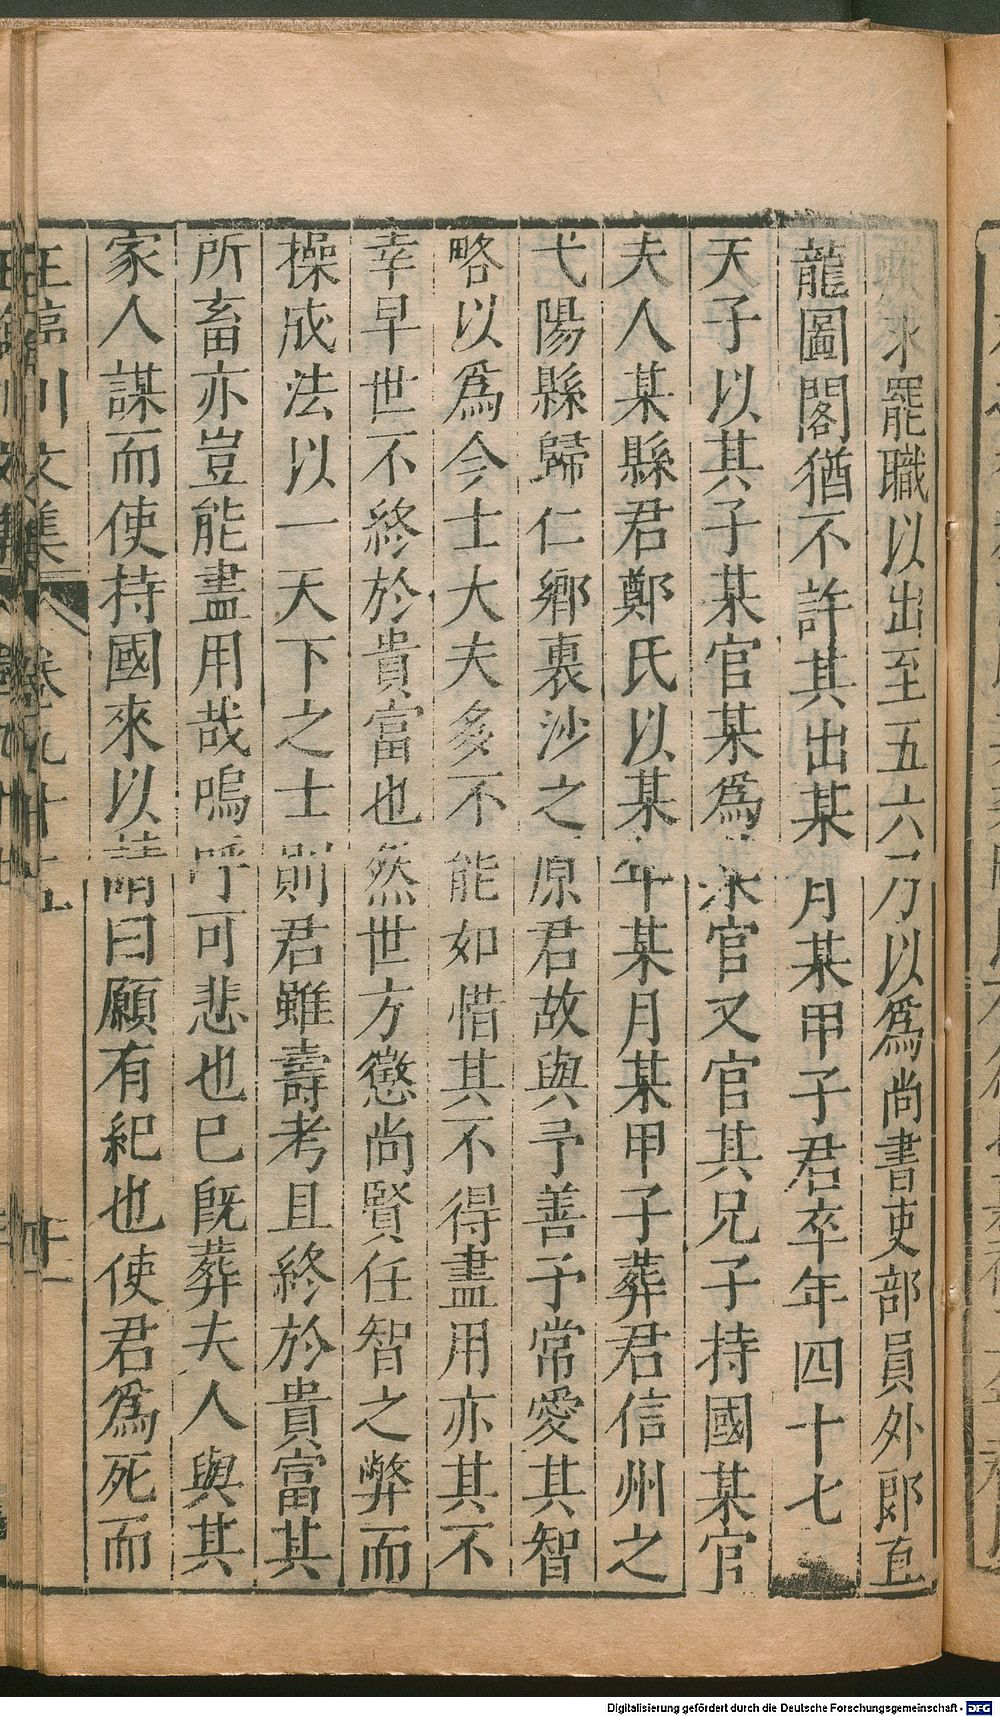 求罷職以出至五六乃以爲尚書吏部員外郎直
龍圖閣猶不許其出某月某甲子君卒年四十七
天子以其子某官某爲某官又官其兄子持國某官
夫人某縣君鄭氏以某年某月某甲子葬君信州之
弋陽縣歸仁鄉裏沙之原君故與予善予常愛其智
略以爲今士大夫多不能如惜其不得盡用亦其不
幸早世不終於貴富也然世方懲尚賢任智之弊而
操成法以一天下之士則君雖壽考且終於貴富其
所畜亦豈能盡用哉嗚呼可悲也巳旣葬夫人與其
家人謀而使持國來以請曰願有紀也使君爲死而
川文集 卷九十五
Digitalisierung gefördert durch die Deutsche Forschungsgemeinschaft - DFG